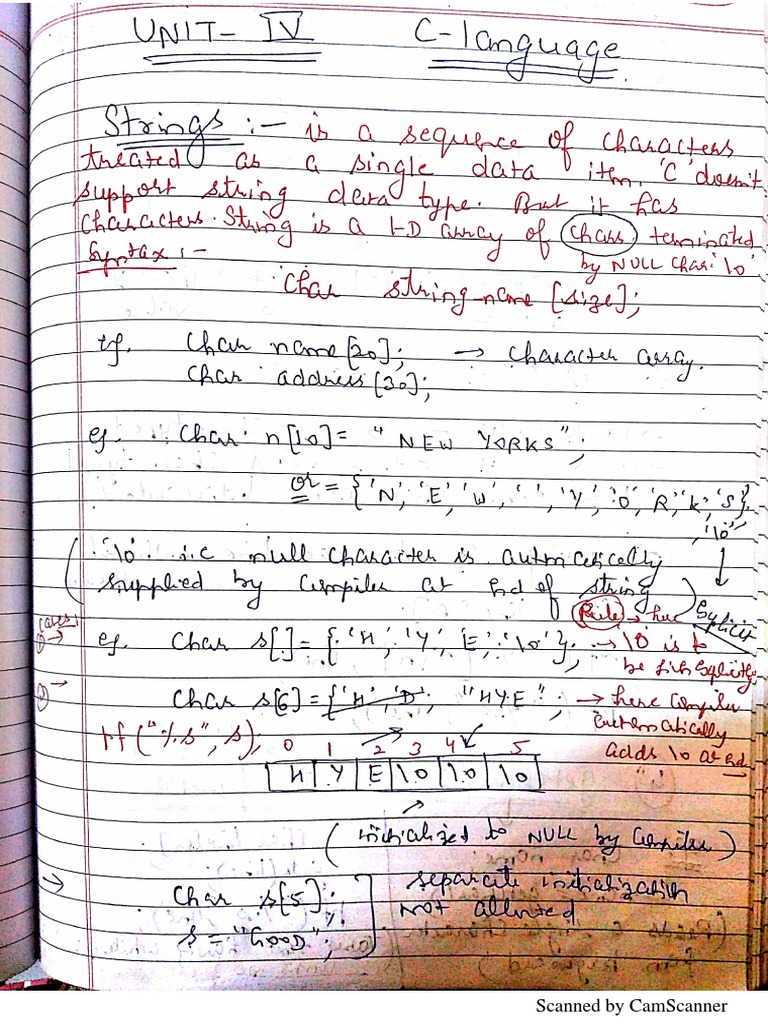 UNIT- IV C-language
Strings :- is a sequence of characters
treated as a single data item. 'C' doesn't
support string data type. But it has
characters. String is a 1-D array of chars terminated
by NULL char '\0'
Syntax :-
char string-name [size];
eg. char name[20]; → character array.
char address[30];
eg. char n[10] = "NEW YORKS";
or = {'N', 'E', 'W', ' ', 'Y', 'O', 'R', 'K', 'S',
'\0'}
('\0' i.e null character is automatically
supplied by compiler at end of string)
Explicit
cases: Rule → here
① → eg. char s[] = {'H', 'Y', 'E', '\0'}; → \0 is to
be explicitly
② → char s[6] = "HYE"; → here compiler
automatically
adds \0 at end
("%s", s);
0 1 2 3 4 5
H Y E \0 \0 \0
(initialized to NULL by compiler)
→ char s[5];
s = "GOOD";
separate initialization
not allowed
Scanned by CamScanner